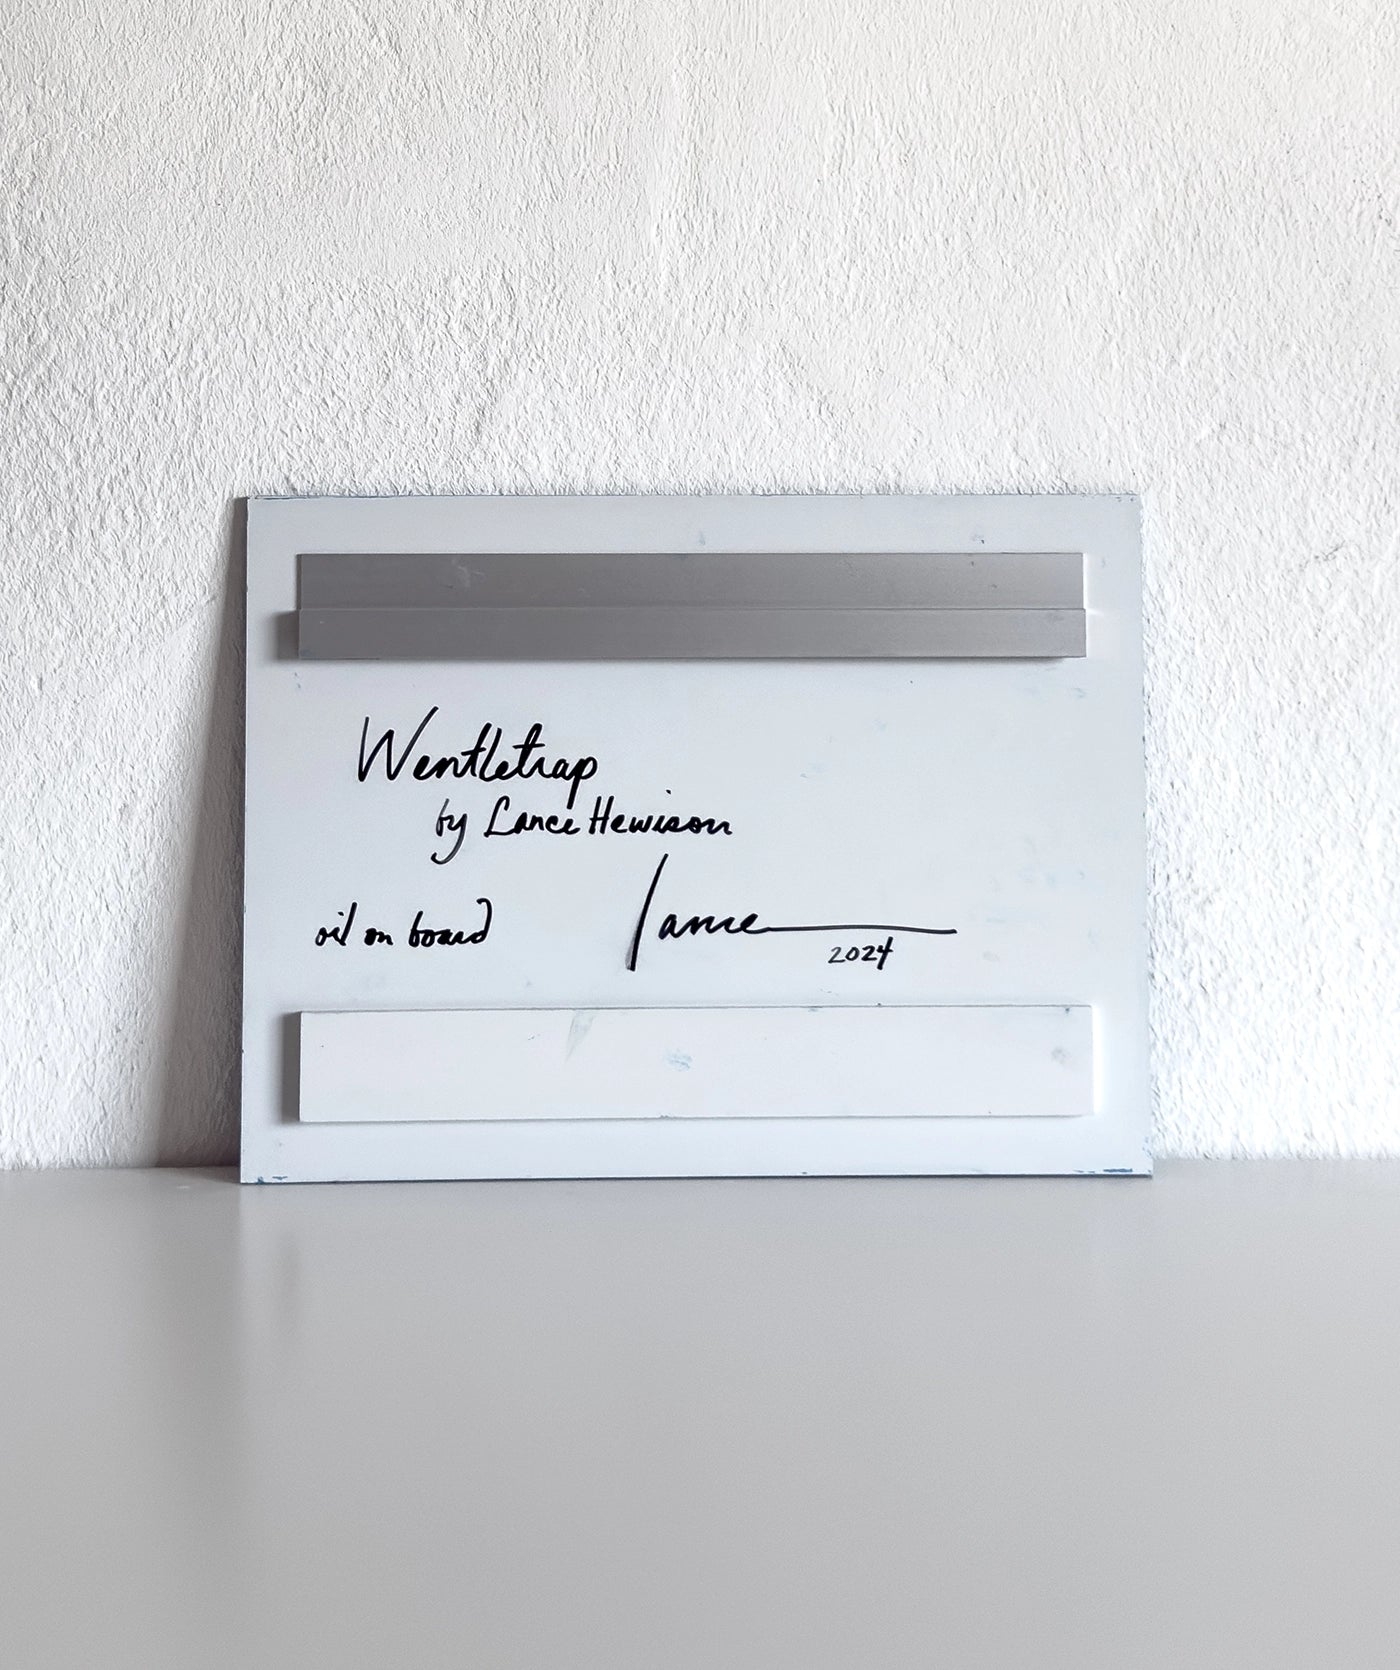 Wentletrap
by Lance Hewison
oil on board
Lance
2024